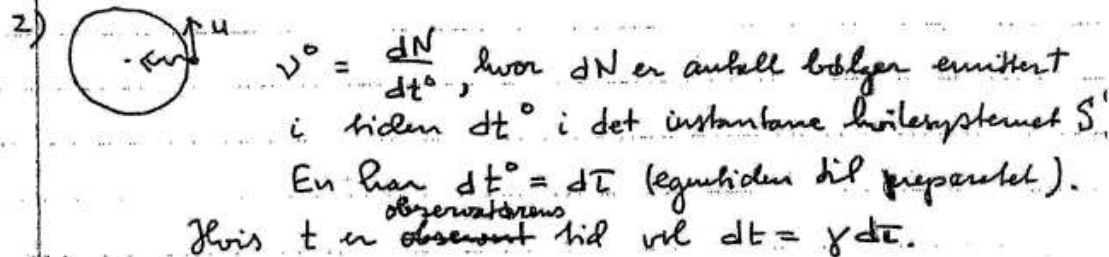 2)
u
ν° = dN/dt°, hvor dN er antall bølger emittert
i tiden dt° i det instantane hvilesystemet S'.
En har dt° = dτ (egentiden til preparatet).
observatørens
Hvis t er observert tid vil dt = γ dτ.